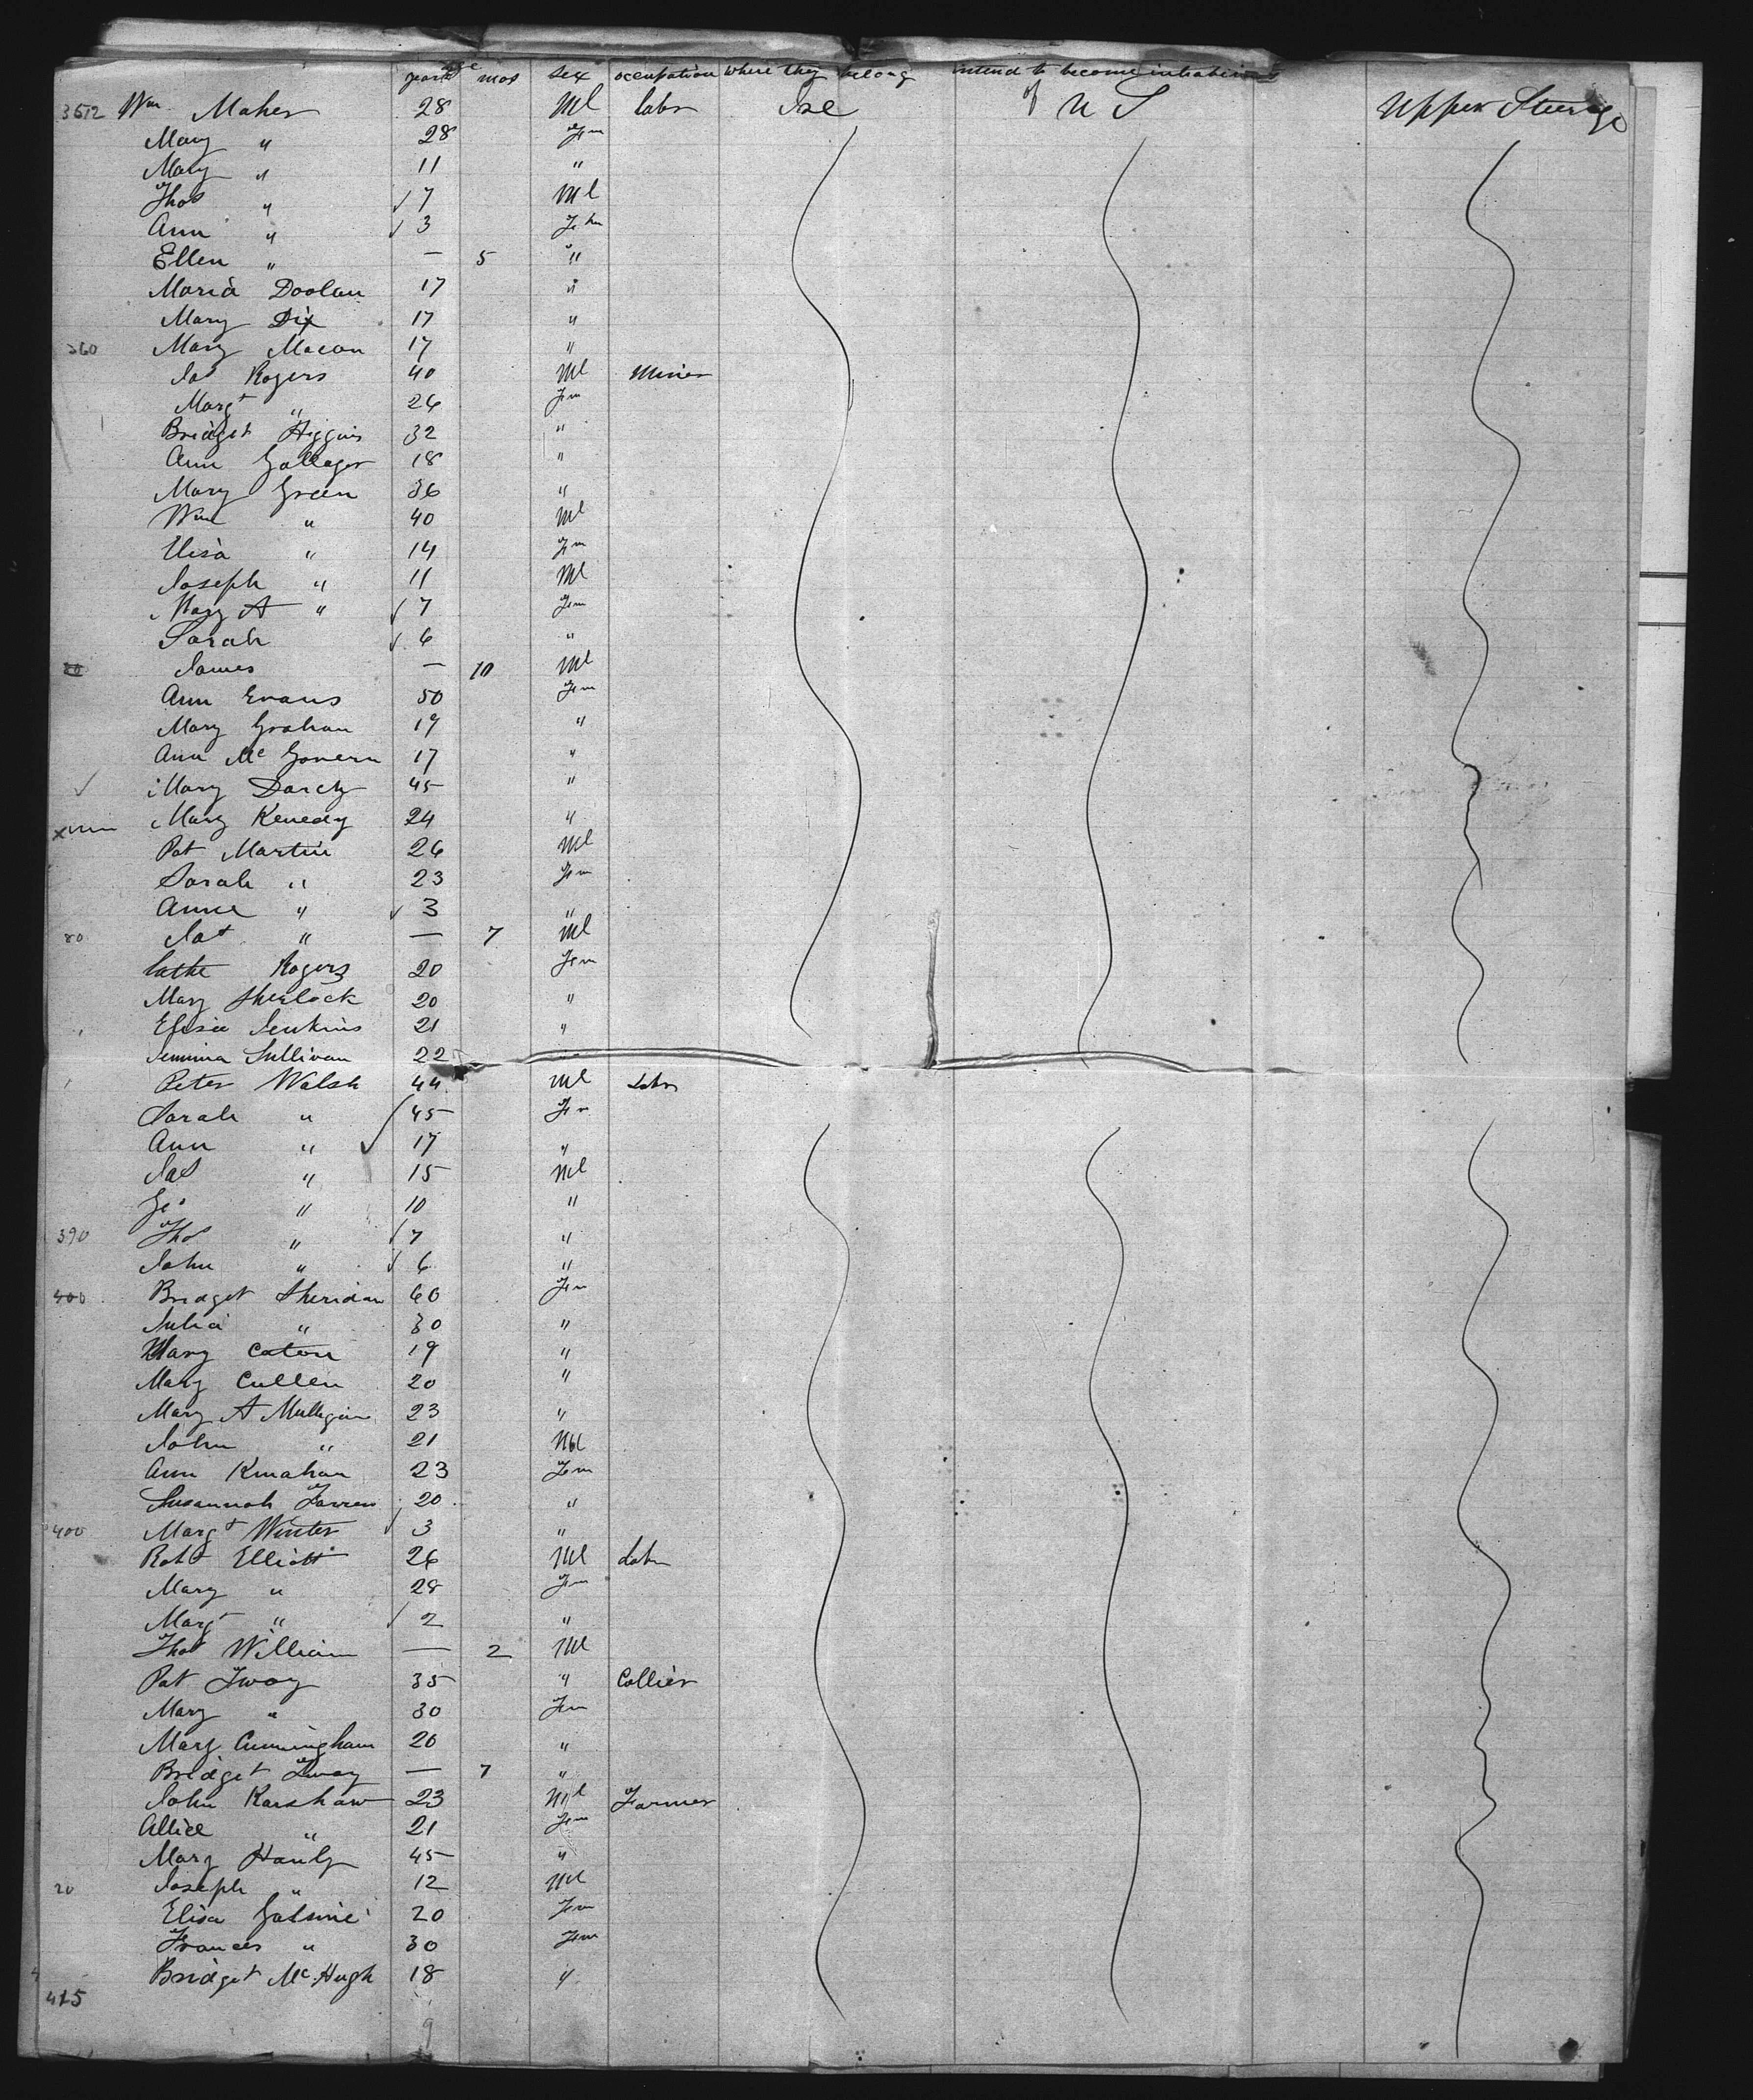 age
years mos sex occupation where they belong intend to become inhabitants
Wm Maher 28 Ml labr Ire of U S Upper Steerage
Mary " 28 Fm
Mary " 11 "
Thos " 7 Ml
Ann " 3 Fm
Ellen " — 5 "
Maria Doolan 17 "
Mary Dix 17 "
360 Mary Macon 17 "
Jas Rogers 40 Ml Miner
Margt " 26 Fm
Bridget Higgins 32 "
Ann Gallager 18 "
Mary Green 36 "
Wm " 40 Ml
Elisa " 14 Fm
Joseph " 11 Ml
Mary A " 7 Fm
Sarah 6 "
James — 10 Ml
Ann Evans 50 Fm
Mary Graham 19 "
Ann McGovern 17 "
Mary Darcy 45 "
Mary Kenedy 24 "
Pat Martin 26 Ml
Sarah " 23 Fm
Anne " 3 "
80 Jas " — 7 Ml
Cathe Rogers 20 Fm
Mary Sherlock 20 "
Elisa Jenkins 21 "
Jemima Sullivan 22
Peter Walsh 44 Ml Labr
Sarah " 45 Fm
Ann " 17 "
Jas " 15 Ml
Geo " 10 "
390 Thos " 7 "
John " 6 "
400 Bridget Sheridan 60 Fm
Julia " 30 "
Mary Caton 19 "
Mary Cullen 20 "
Mary A Mulligan 23 "
John " 21 Ml
Ann Kinahan 23 Fm
Susannah 20 "
400 Margt Winter 3 "
Robt Elliott 26 Ml Labr
Mary " 28 Fm
Margt " 2 "
Thos William — 2 Ml
Pat Tway 35 " Collier
Mary " 30 Fm
Mary Cunningham 20 "
Bridget Tway — 7 "
John Karshaw 23 Ml Farmer
Allice " 21 Fm
Mary Hanly 45 "
20 Joseph " 12 Ml
Elisa 20 Fm
Frances " 30 Fm
Bridget McHugh 18 "
415